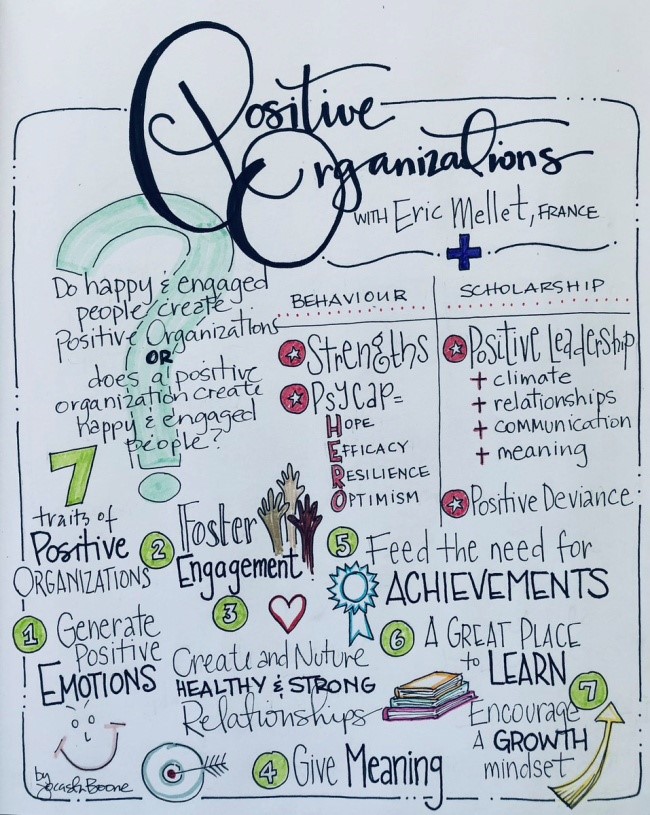 Positive
Organizations
WITH Eric Mellet, FRANCE
+
Do happy & engaged
people create
Positive Organizations
OR
does a positive
organization create
happy & engaged
people?
BEHAVIOUR
Strengths
PsyCap=
HOPE
EFFICACY
RESILIENCE
OPTIMISM
SCHOLARSHIP
Positive Leadership
+ climate
+ relationships
+ communication
+ meaning
Positive Deviance
7
traits of
Positive
ORGANIZATIONS
1 Generate
Positive
EMOTIONS
2 Foster
Engagement
3
Create and Nuture
HEALTHY & STRONG
Relationships
4 Give Meaning
5 Feed the need for
ACHIEVEMENTS
6 A GREAT PLACE
to LEARN
7
Encourage
A GROWTH
mindset
by
Boone